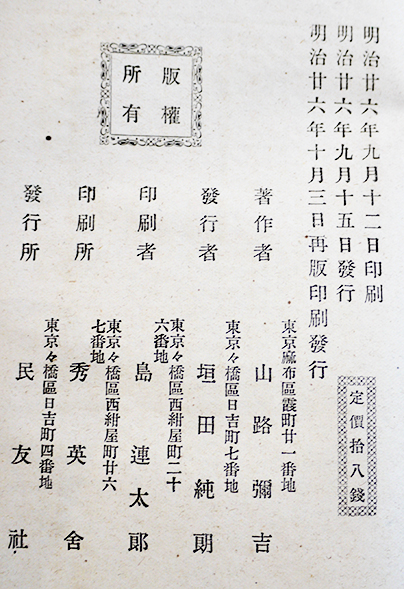 明治廿六年九月十二日印刷
明治廿六年九月十五日發行
明治廿六年十月三日再版印刷發行
定價拾八錢
版權
所有
東京麻布區霞町廿一番地
著作者 山路彌吉
東京々橋區日吉町七番地
發行者 垣田純朗
東京々橋區西紺屋町二十
六番地
印刷者 島連太郎
東京々橋區西紺屋町廿六
七番地
印刷所 秀英舍
東京々橋區日吉町四番地
發行所 民友社